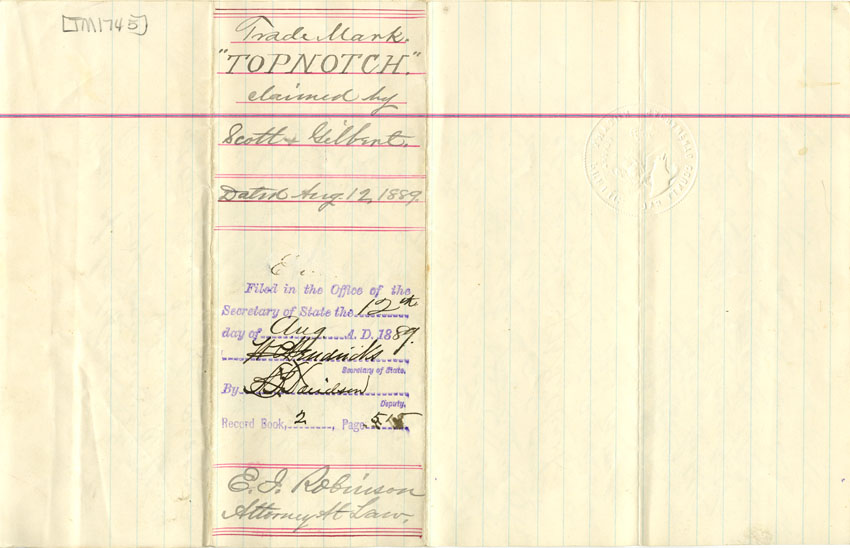 [TM1745]
Trade Mark.
"TOPNOTCH."
claimed by
Scott & Gilbert.
Dated Aug. 12, 1889.
Filed in the Office of the
Secretary of State the 12th
day of Aug A. D. 1889.
W C Hendricks
Secretary of State.
By Davidson
Deputy.
Record Book, 2, Page
E. J. Robinson
Attorney At Law.